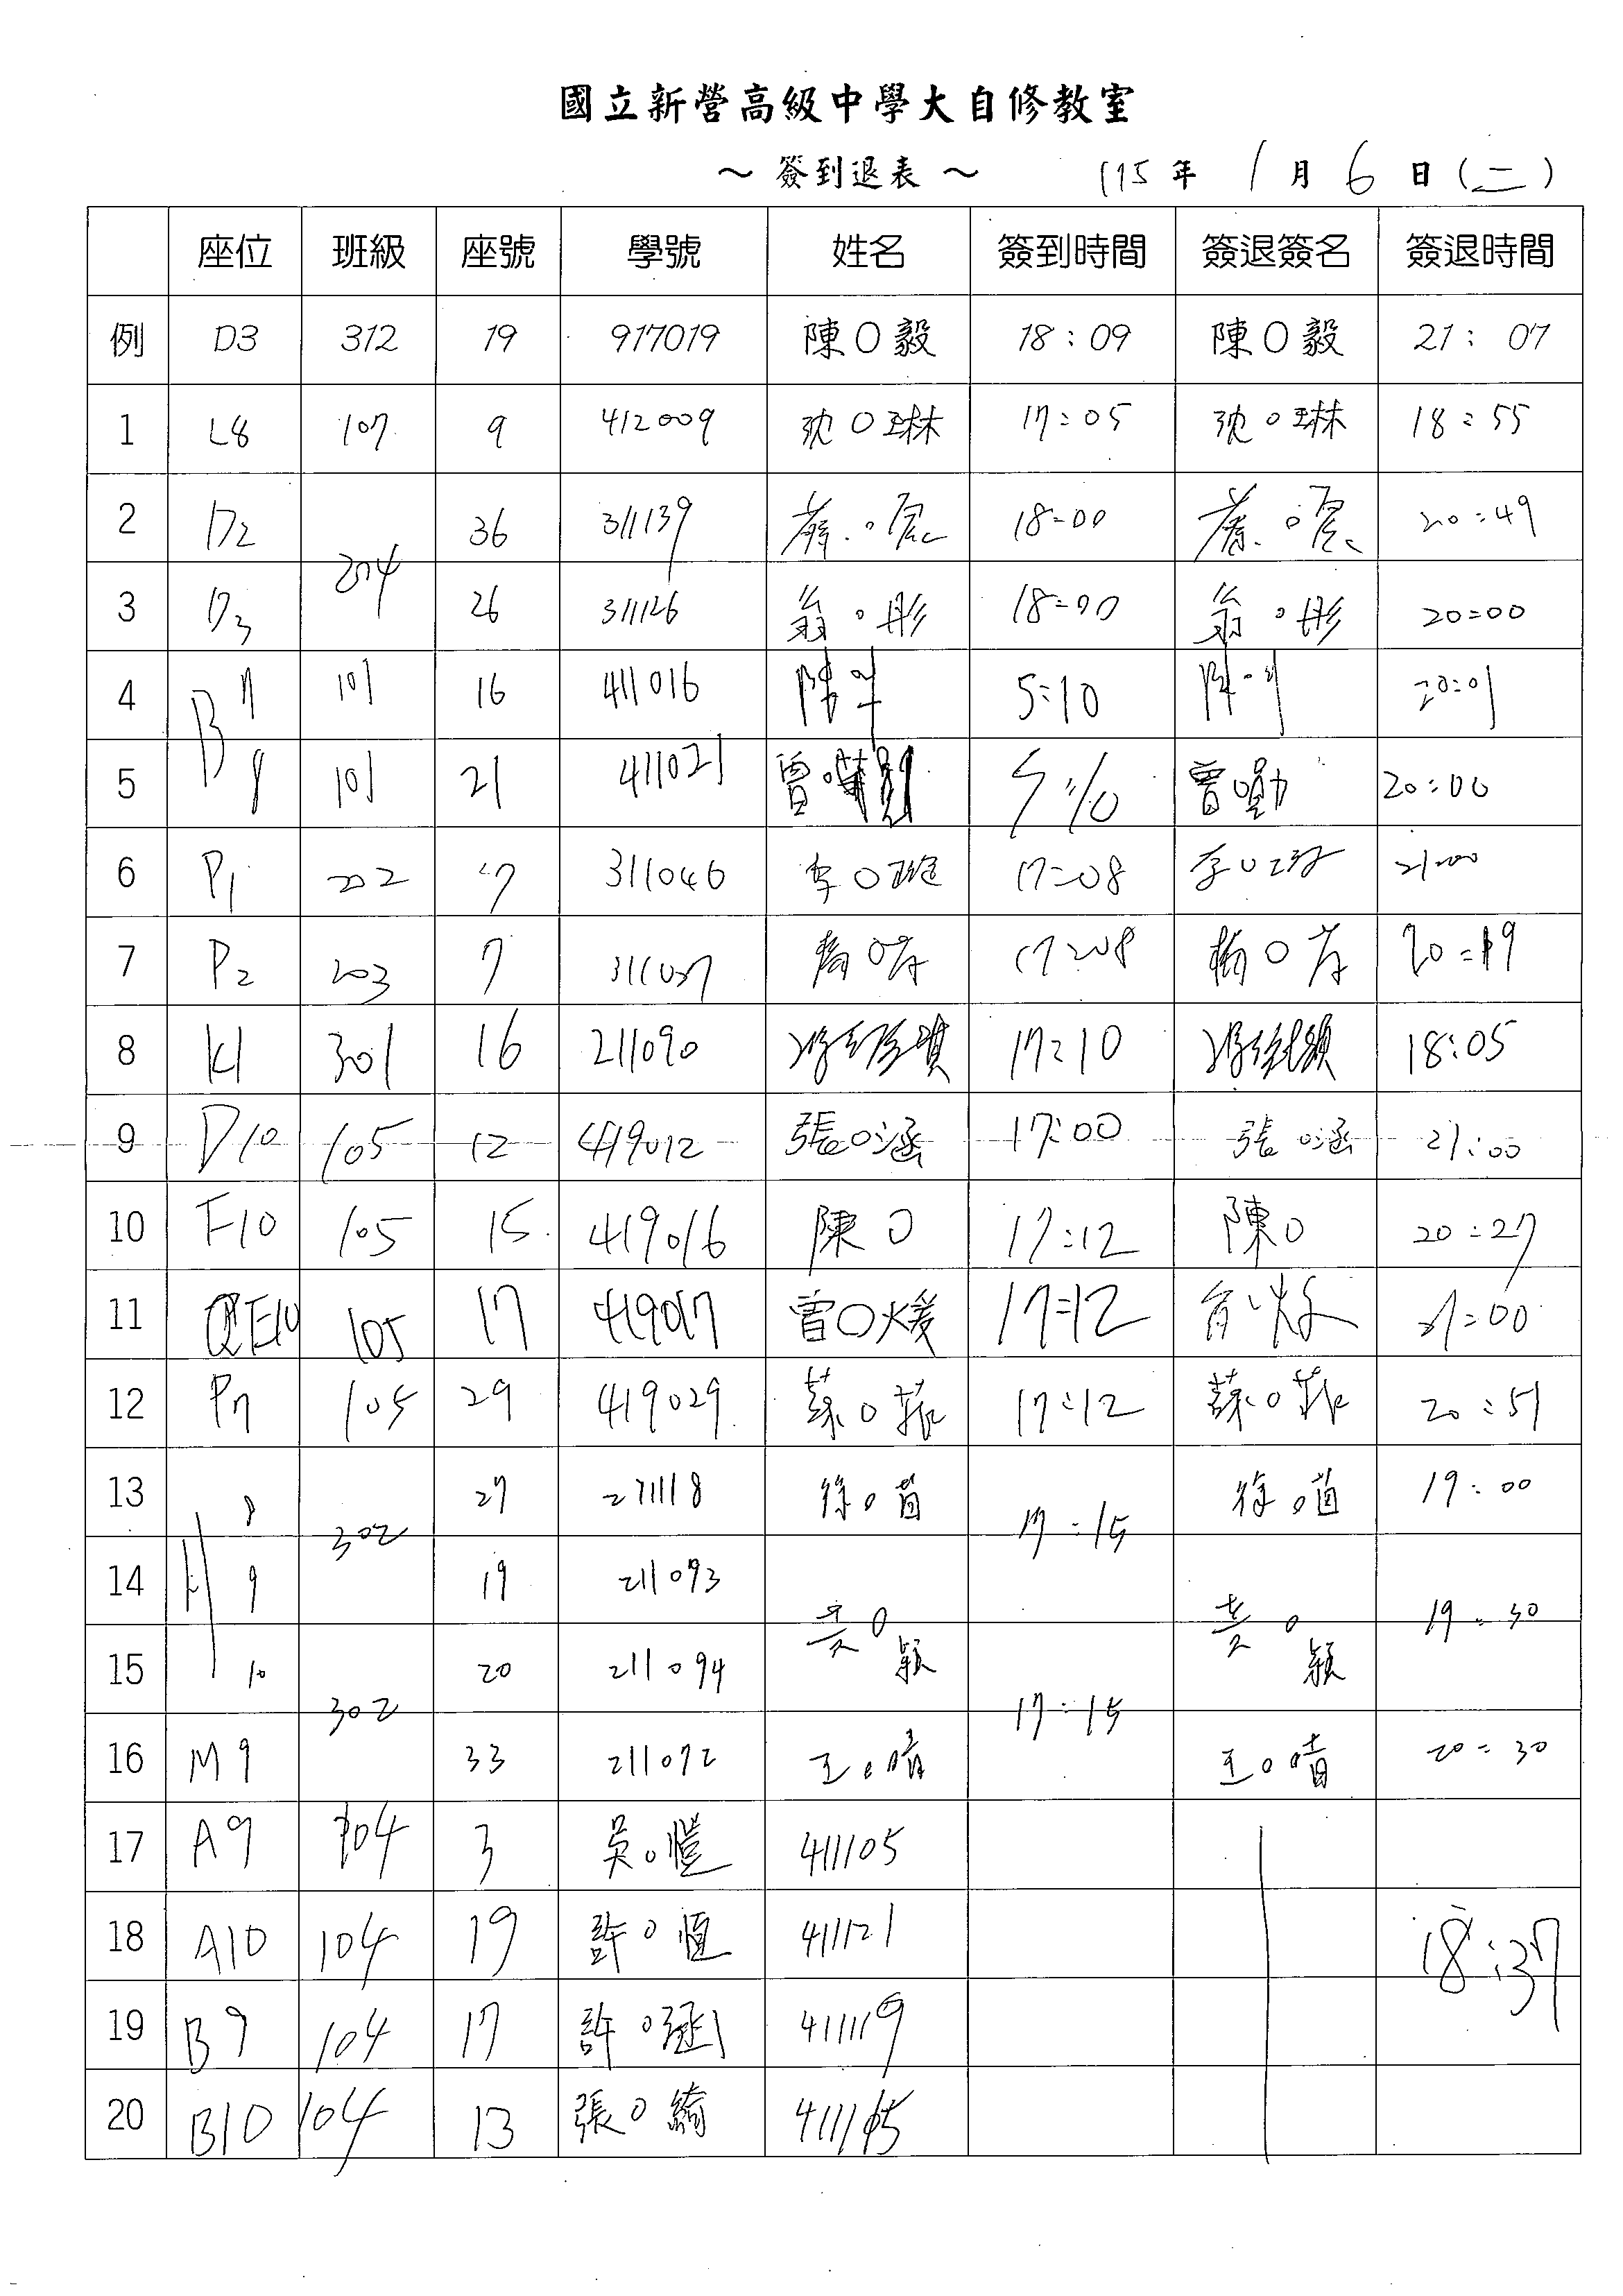 國立新營高級中學大自修教室
～ 簽到退表 ～ 115 年 1 月 6 日 (二)
座位 班級 座號 學號 姓名 簽到時間 簽退簽名 簽退時間
例 D3 312 19 917019 陳O毅 18:09 陳O毅 21:07
1 L8 107 9 412009 沈O琳 17:05 沈O琳 18:55
2 D2 204 36 311139 18:00 20:49
3 D3 26 311126 翁O彤 18:00 翁O彤 20:00
4 B7 101 16 411016 陳 5:10 陳 20:01
5 8 101 21 411021 曾O勛 5:10 曾O勛 20:00
6 P1 202 7 311046 李O 17:08 李O 21:00
7 P2 203 7 311037 17:08 20:19
8 K1 301 16 211090 17:10 18:05
9 D10 105 12 419012 張O涵 17:00 張O涵 21:00
10 F10 105 15 419016 陳O 17:12 陳O 20:27
11 E10 105 17 419017 曾O煖 17:12 21:00
12 P7 105 29 419029 蘇O菲 17:12 蘇O菲 20:51
13 H 8 302 27 211118 徐O茵 17:15 徐O茵 19:00
14 9 19 211093 黃O穎 黃O穎 19:30
15 10 302 20 211094 17:15
16 M9 33 211072 王O晴 王O晴 20:30
17 A9 104 3 吳O愷 411105
18 A10 104 19 許O恆 411121 18:37
19 B9 104 17 許O 411119
20 B10 104 13 張O綺 411115